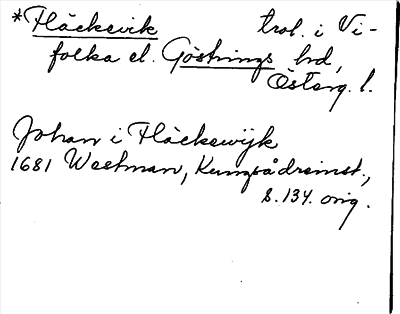 *Fläcksvik trol. i Vi-
folka el. Göstrings hd,
Österg. l.
Johan i Fläckewijk
1681 Westman, Kungsådreinst.,
s. 134. orig.